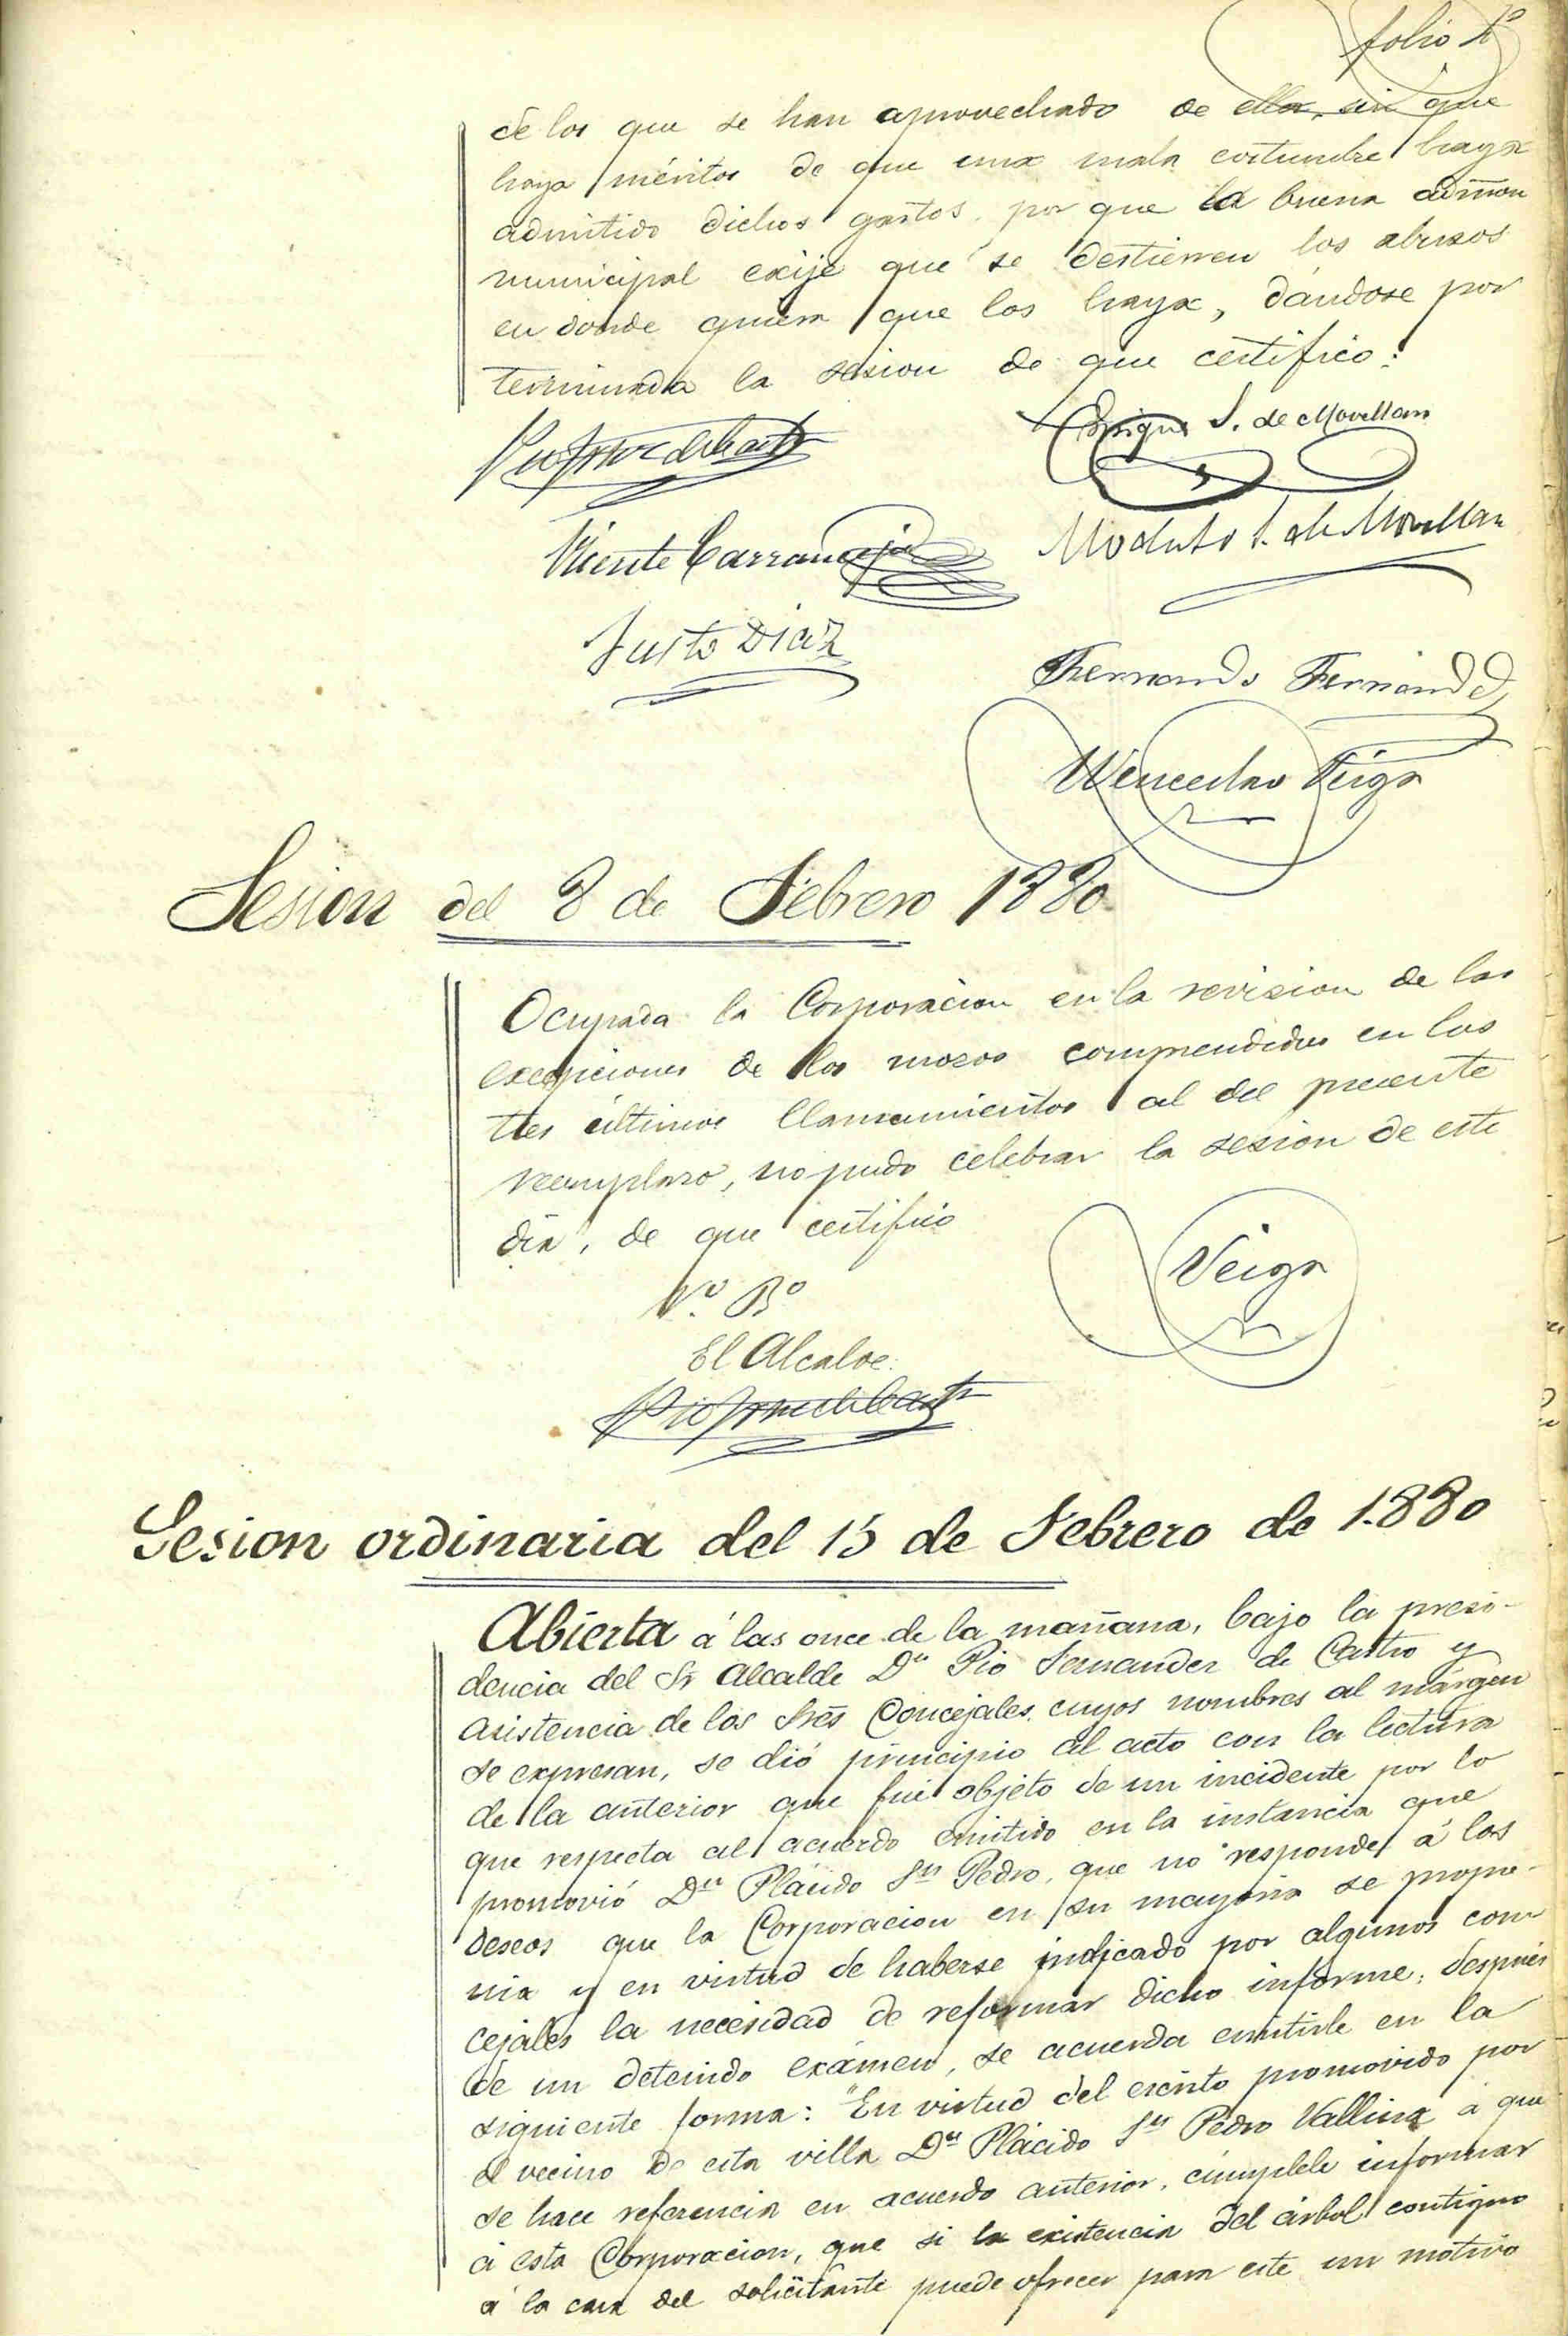 folio
de los que se han aprovechado de ella, sin que
haya méritos de que una mala costumbre haya
admitido dichos gastos, por que la buena admon
municipal exije que se destierren los abusos
en donde quiera que los haya, dándose por
terminada la sesion de que certifico:
Enrique S. de Movellan
Vicente Carranceja
Modesto S. de Movellan
Justo Diaz
Fernando Fernandez
Wenceslao Veiga
Sesion del 8 de Febrero 1880
Ocupada la Corporacion en la revision de las
excepciones de los mozos comprendidos en los
tres últimos llamamientos al del presente
reemplazo, no pudo celebrar la sesion de este
dia, de que certifico
Veiga
V.º B.º
El Alcalde.
Sesion ordinaria del 15 de Febrero de 1.880
Abierta á las once de la mañana, bajo la presi-
dencia del Sr Alcalde Dn Pio Fernandez de Castro y
asistencia de los Sres Concejales cuyos nombres al márgen
se expresan, se dió principio al acto con la lectura
de la anterior que fué objeto de un incidente por lo
que respecta al acuerdo emitido en la instancia que
promovió Dn Plácido Sn Pedro, que no responde á los
deseos que la Corporacion en su mayoria se propo-
nia y en virtud de haberse indicado por algunos con-
cejales la necesidad de reformar dicho informe, despues
de un detenido exámen, se acuerda emitirle en la
siguiente forma: "En virtud del escrito promovido por
el vecino de esta villa Dn Plácido Sn Pedro Vallina á que
se hace referencia en acuerdo anterior, cúmplele informar
á esta Corporacion, que si la existencia del árbol contiguo
á la casa del solicitante puede ofrecer para este un motivo